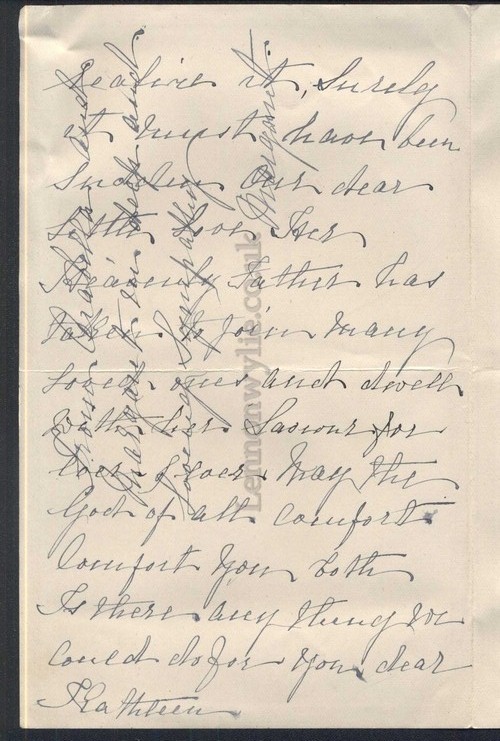 realize it, Surely
it must have been
sudden, our dear
little love Her
Heavenly Father has
taken to join many
loved ones and dwell
with her Saviour for
ever & ever. May the
God of all comfort
Comfort you both
Is there any thing we
could do for you, dear
Kathleen
From Martha and
Margaret in deep and
loving sympathy
Margaret.
Lennonwylie.co.uk